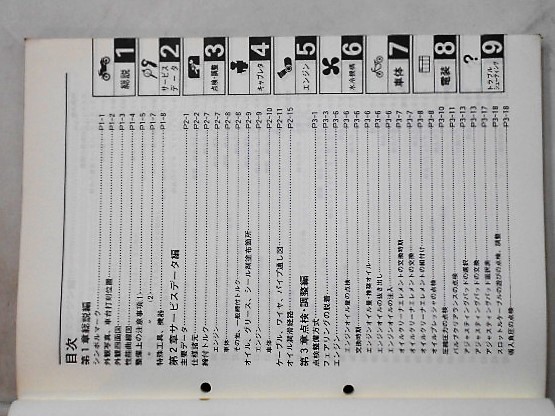 目次
第1章総説編
シンボルマーク P1-1
外観写真、車台打刻位置 P1-2
外観四面図 P1-3
性能曲線図 P1-4
整備上の注意事項(1) P1-5
〃 (2) P1-7
特殊工具、機器 P1-8
第2章サービスデータ編
主要データ P2-1
仕様諸元 P2-2
締付トルク P2-7
エンジン P2-7
車体 P2-8
その他、一般締付トルク P2-8
オイル、グリース、シール剤塗布箇所 P2-9
エンジン P2-9
車体 P2-10
ケーブル、ワイヤ、パイプ通し図 P2-11
オイル潤滑経路 P2-15
第3章点検・調整編
点検整備方式 P3-1
フェアリングの脱着 P3-3
エンジン P3-6
エンジンオイル量の点検 P3-6
交換時期 P3-6
エンジンオイル量・推奨オイル P3-6
エンジンオイルの抜き出し P3-6
エンジンオイルの注入 P3-6
オイルクリーナエレメントの交換時期 P3-7
オイルクリーナエレメントの交換 P3-7
オイルクリーナエレメントの組付け P3-8
オイルプレッシャの点検 P3-8
圧縮圧力の点検 P3-10
バルブクリアランスの点検 P3-11
アジャスティングパッドの選択 P3-13
アジャスティングパッドの交換 P3-13
アジャスティングパッド選択表 P3-17
スロットルケーブルの遊びの点検、調整 P3-18
吸入負圧の点検 P3-18
総説 1
サービスデータ 2
点検・調整 3
キャブレタ 4
エンジン 5
水冷機構 6
車体 7
電装 8
トラブルシューティング 9